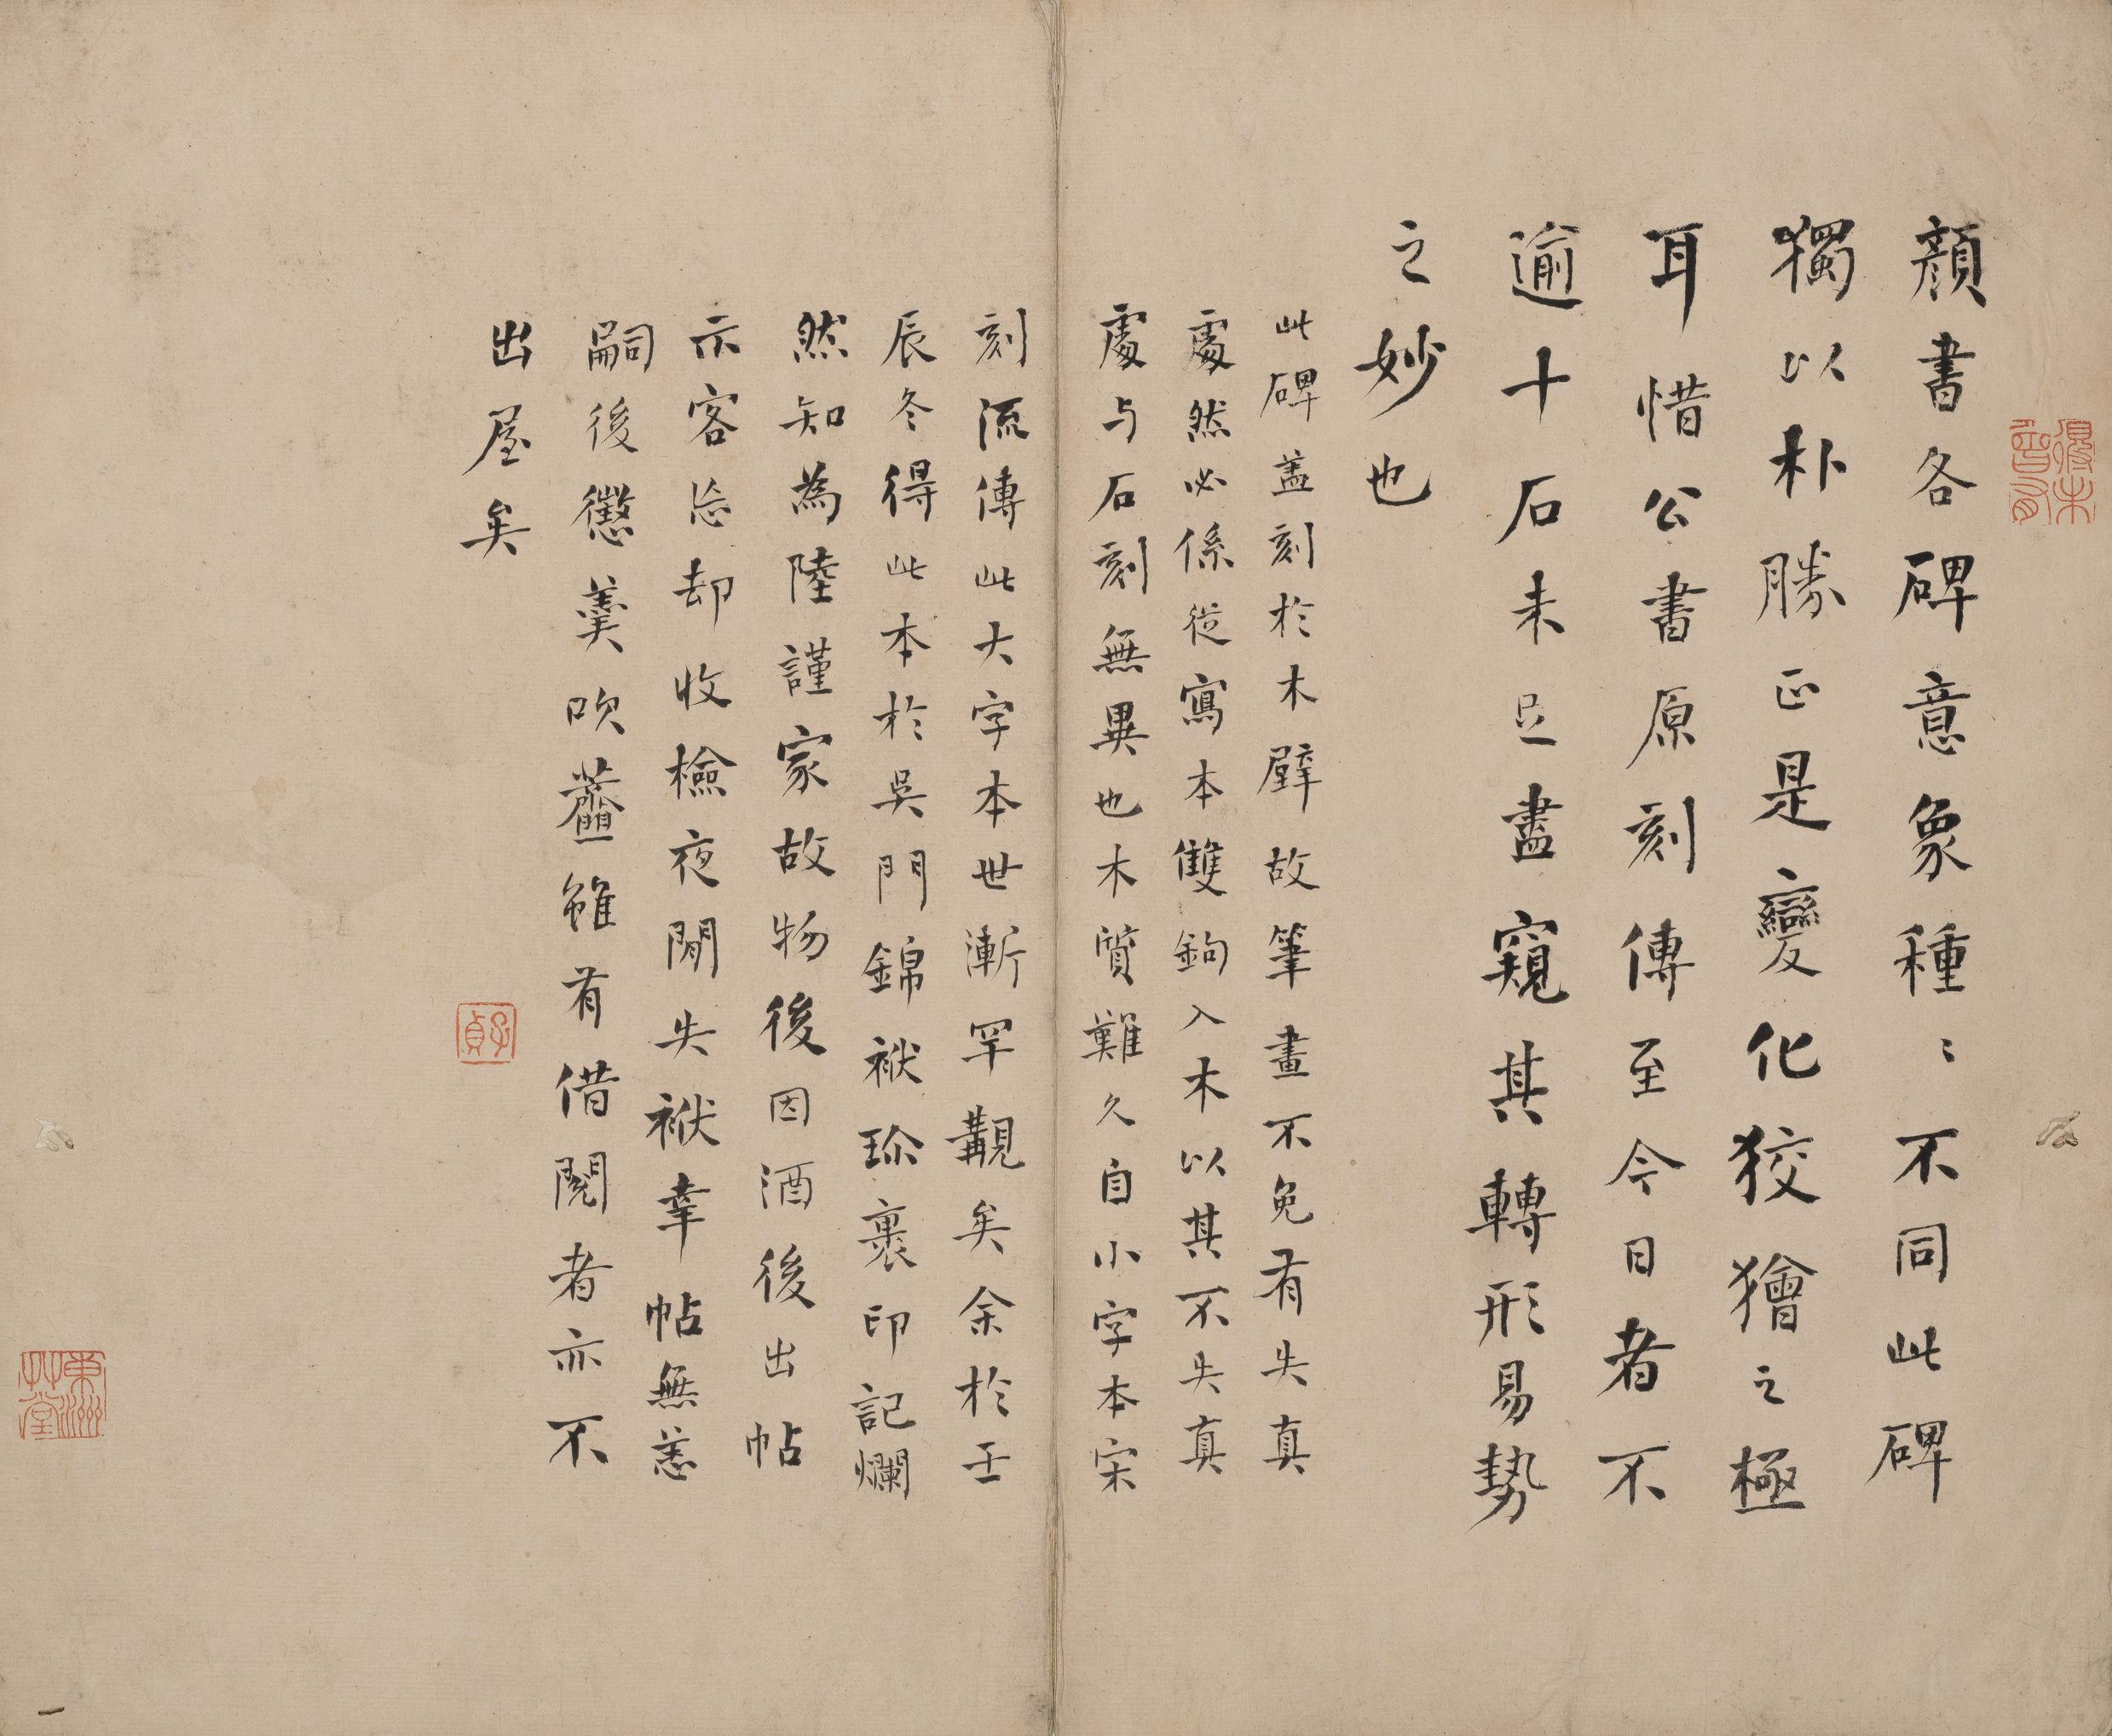 顏書各碑意象種〻不同此碑
獨以朴勝正是變化狡獪之極
耳惜公書原刻傳至今日者不
逾十石未足盡窺其轉形易勢
之妙也
此碑蓋刻於木壁故筆畫不免有失真
處然必係從寫本雙鉤入木以其不失真
處与石刻無異也木質難久自小字本宋
刻流傳此大字本世漸罕覯矣余於壬
辰冬得此本於吳門錦袱珎裹印記爛
然知為陸謹家故物後因酒後出帖
示客忘却收檢夜閒失袱幸帖無恙
嗣後懲羹吹虀雖有借閱者亦不
出屋矣
子貞
東洲草堂